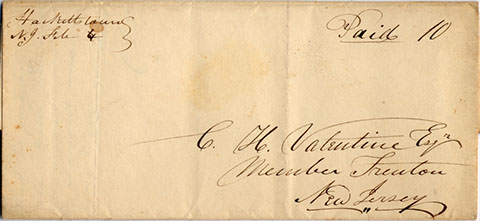 Hackettstown
N.J. Feb 4
Paid 10
C. H. Valentine Esqr
Member Trenton
New Jersey